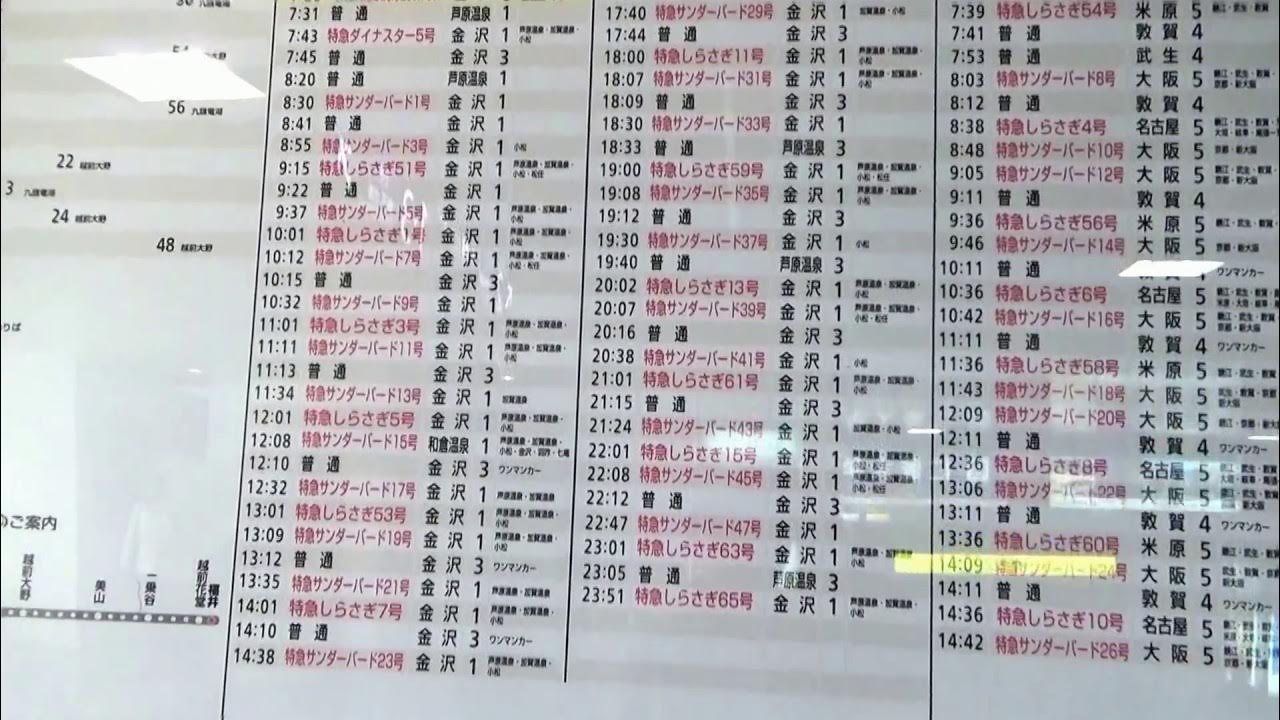 56 九頭竜湖
22 越前大野
3 九頭竜湖
24 越前大野
48 越前大野
のご案内
越前大野
美山
一乗谷
越前花堂
福井
7:31 普通 芦原温泉 1
7:43 特急ダイナスター5号 金沢 1 芦原温泉・加賀温泉・小松
7:45 普通 金沢 3
8:20 普通 芦原温泉 1
8:30 特急サンダーバード1号 金沢 1
8:41 普通 金沢 1
8:55 特急サンダーバード3号 金沢 1 小松
9:15 特急しらさぎ51号 金沢 1 芦原温泉・加賀温泉・小松・松任
9:22 普通 金沢 1
9:37 特急サンダーバード5号 金沢 1 芦原温泉・加賀温泉・小松
10:01 特急しらさぎ1号 金沢 1 芦原温泉・加賀温泉・小松
10:12 特急サンダーバード7号 金沢 1 芦原温泉・加賀温泉・小松・松任
10:15 普通 金沢 3
10:32 特急サンダーバード9号 金沢 1
11:01 特急しらさぎ3号 金沢 1 芦原温泉・加賀温泉・小松
11:11 特急サンダーバード11号 金沢 1 芦原温泉・加賀温泉・小松
11:13 普通 金沢 3
11:34 特急サンダーバード13号 金沢 1 加賀温泉
12:01 特急しらさぎ5号 金沢 1 芦原温泉・加賀温泉・小松
12:08 特急サンダーバード15号 和倉温泉 1 芦原温泉・加賀温泉・小松・金沢・羽咋・七尾
12:10 普通 金沢 3 ワンマンカー
12:32 特急サンダーバード17号 金沢 1 芦原温泉
13:01 特急しらさぎ53号 金沢 1 芦原温泉・加賀温泉・小松
13:09 特急サンダーバード19号 金沢 1 芦原温泉・加賀温泉・小松
13:12 普通 金沢 3 ワンマンカー
13:35 特急サンダーバード21号 金沢 1 芦原温泉・加賀温泉
14:01 特急しらさぎ7号 金沢 1 芦原温泉・加賀温泉・小松
14:10 普通 金沢 3 ワンマンカー
14:38 特急サンダーバード23号 金沢 1 芦原温泉・加賀温泉・小松
17:40 特急サンダーバード29号 金沢 1 加賀温泉・小松
17:44 普通 金沢 3
18:00 特急しらさぎ11号 金沢 1 芦原温泉・加賀温泉・小松
18:07 特急サンダーバード31号 金沢 1 芦原温泉・加賀温泉・小松
18:09 普通 金沢 3
18:30 特急サンダーバード33号 金沢 1
18:33 普通 芦原温泉 3
19:00 特急しらさぎ59号 金沢 1 芦原温泉・加賀温泉・小松・松任
19:08 特急サンダーバード35号 金沢 1 芦原温泉・加賀温泉・小松
19:12 普通 金沢 3
19:30 特急サンダーバード37号 金沢 1 小松
19:40 普通 芦原温泉 3
20:02 特急しらさぎ13号 金沢 1 芦原温泉・加賀温泉・小松
20:07 特急サンダーバード39号 金沢 1 芦原温泉・加賀温泉・小松・松任
20:16 普通 金沢 3
20:38 特急サンダーバード41号 金沢 1 小松
21:01 特急しらさぎ61号 金沢 1 芦原温泉・加賀温泉・小松
21:15 普通 金沢 3
21:24 特急サンダーバード43号 金沢 1 加賀温泉・小松
22:01 特急しらさぎ15号 金沢 1 小松・松任
22:08 特急サンダーバード45号 金沢 1 小松・松任
22:12 普通 金沢 3
22:47 特急サンダーバード47号 金沢 1
23:01 特急しらさぎ63号 金沢 1 芦原温泉・加賀温泉・小松
23:05 普通 芦原温泉 3
23:51 特急しらさぎ65号 金沢 1 芦原温泉・加賀温泉・小松
7:39 特急しらさぎ54号 米原 5 鯖江・武生・敦賀
7:41 普通 敦賀 4
7:53 普通 武生 4
8:03 特急サンダーバード8号 大阪 5 鯖江・武生・敦賀・京都・新大阪
8:12 普通 敦賀 4
8:38 特急しらさぎ4号 名古屋 5 鯖江・武生・敦賀・
8:48 特急サンダーバード10号 大阪 5 京都・新大阪
9:05 特急サンダーバード12号 大阪 5 鯖江・武生・敦賀・京都・新大阪
9:11 普通 敦賀 4
9:36 特急しらさぎ56号 米原 5 鯖江・武生・敦賀
9:46 特急サンダーバード14号 大阪 5 京都・新大阪
10:11 普通 ワンマンカー
10:36 特急しらさぎ6号 名古屋 5 鯖江・武生・敦賀・
10:42 特急サンダーバード16号 大阪 5 鯖江・武生・敦賀・京都・新大阪
11:11 普通 敦賀 4 ワンマンカー
11:36 特急しらさぎ58号 米原 5 鯖江・武生・敦賀
11:43 特急サンダーバード18号 大阪 5 武生・敦賀・京都・新大阪
12:09 特急サンダーバード20号 大阪 5
12:11 普通 敦賀 4 ワンマンカー
12:36 特急しらさぎ8号 名古屋 5
13:06 大阪 5
13:11 普通 敦賀 4 ワンマンカー
13:36 特急しらさぎ60号 米原 5 鯖江・武生・敦賀
14:09 特急サンダーバード24号 大阪 5 武生・敦賀・京都・新大阪
14:11 普通 敦賀 4 ワンマンカー
14:36 特急しらさぎ10号 名古屋 5
14:42 特急サンダーバード26号 大阪 5 鯖江・武生・敦賀・京都・新大阪